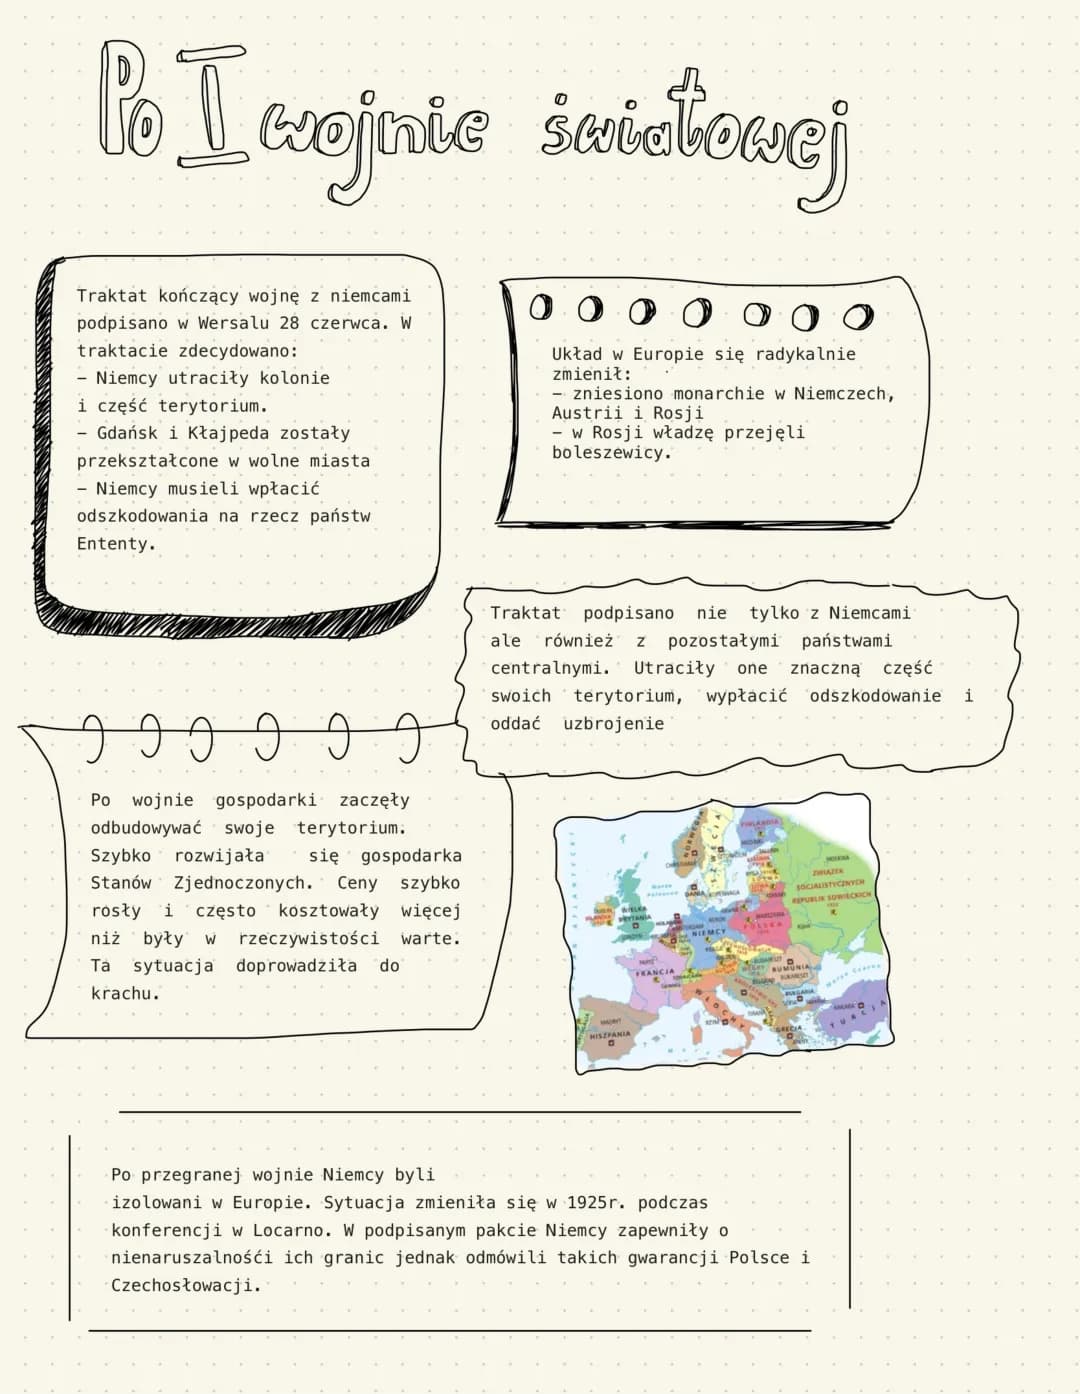 Po I wojnie światowej
Traktat kończący wojnę z niemcami
podpisano w Wersalu 28 czerwca. W
traktacie zdecydowano:
– Niemcy utraciły kolonie
i część terytorium.
– Gdańsk i Kłajpeda zostały
przekształcone w wolne miasta
– Niemcy musieli wpłacić
odszkodowania na rzecz państw
Ententy.
Układ w Europie się radykalnie
zmienił:
– zniesiono monarchie w Niemczech,
Austrii i Rosji
– w Rosji władzę przejęli
boleszewicy.
Traktat podpisano nie tylko z Niemcami
ale również z pozostałymi państwami
centralnymi. Utraciły one znaczną część
swoich terytorium, wypłacić odszkodowanie i
oddać uzbrojenie
Po wojnie gospodarki zaczęły
odbudowywać swoje terytorium.
Szybko rozwijała się gospodarka
Stanów Zjednoczonych. Ceny szybko
rosły i często kosztowały więcej
niż były w rzeczywistości warte.
Ta sytuacja doprowadziła do
krachu.
NORWEGIA
SZWECJA
FINLANDIA
MOSKWA
ZWIĄZEK
SOCJALISTYCZNYCH
REPUBLIK SOWIECKICH
Morze
Północne
DANIA
KOPENHAGA
WIELKA
BRYTANIA
NIEMCY
WARSZAWA
POLSKA
FRANCJA
RUMUNIA
BUKARESZT
Morze Czarne
WŁOCHY
BUŁGARIA
ANKARA
TURCJA
GRECJA
MADRYT
HISZPANIA
RZYM
Po przegranej wojnie Niemcy byli
izolowani w Europie. Sytuacja zmieniła się w 1925r. podczas
konferencji w Locarno. W podpisanym pakcie Niemcy zapewniły o
nienaruszalnośći ich granic jednak odmówili takich gwarancji Polsce i
Czechosłowacji.